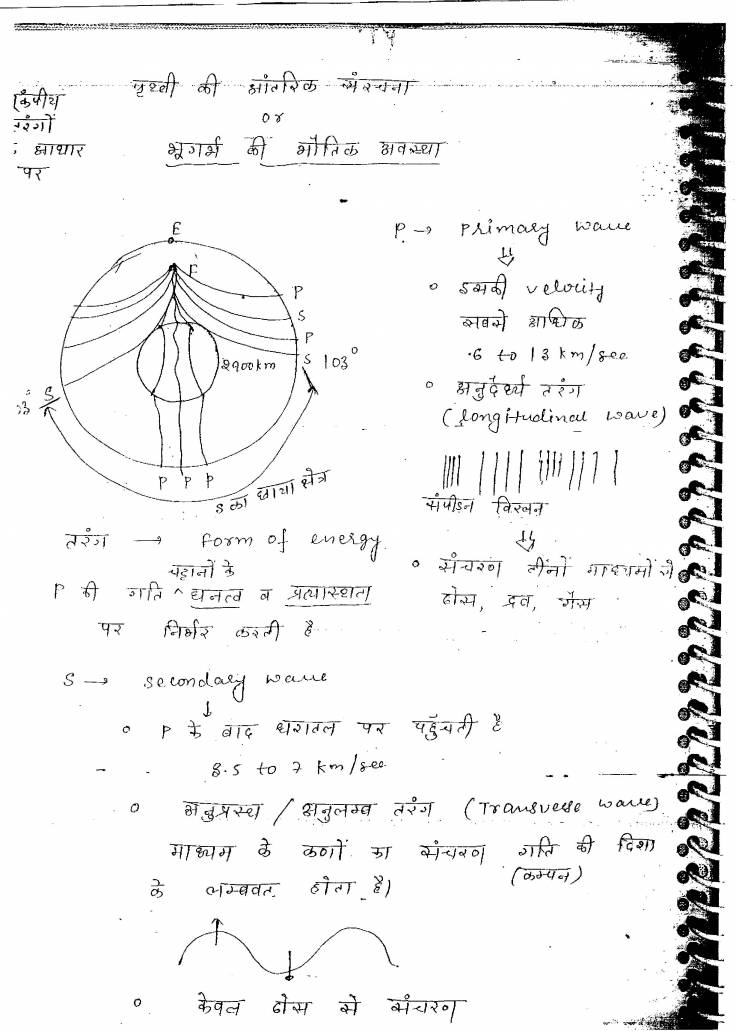 पृथ्वी की आंतरिक संरचना
or
भूगर्भ की भौतिक अवस्था
तरंगों
आधार
पर
E
F
P
S
P
S 103°
2900km
S
P P P
S का छाया क्षेत्र
P → Primary wave
० इसकी velocity
सबसे अधिक
.6 to 13 km/sec
० अनुदैर्ध्य तरंग
(Longitudinal wave)
संपीडन विरलन
० संचरण तीनों माध्यमों से
ठोस, द्रव, गैस
तरंग → Form of energy
चट्टानों के
P की गति ^ घनत्व व प्रत्यास्थता
पर निर्भर करती है
S → Secondary wave
० P के बाद धरातल पर पहुँचती है
to 7 km/sec
० अनुप्रस्थ / अनुलम्ब तरंग (Transverse wave)
माध्यम के कणों का संचरण गति की दिशा
(कम्पन)
के लम्बवत होता है)
० केवल ठोस से संचरण